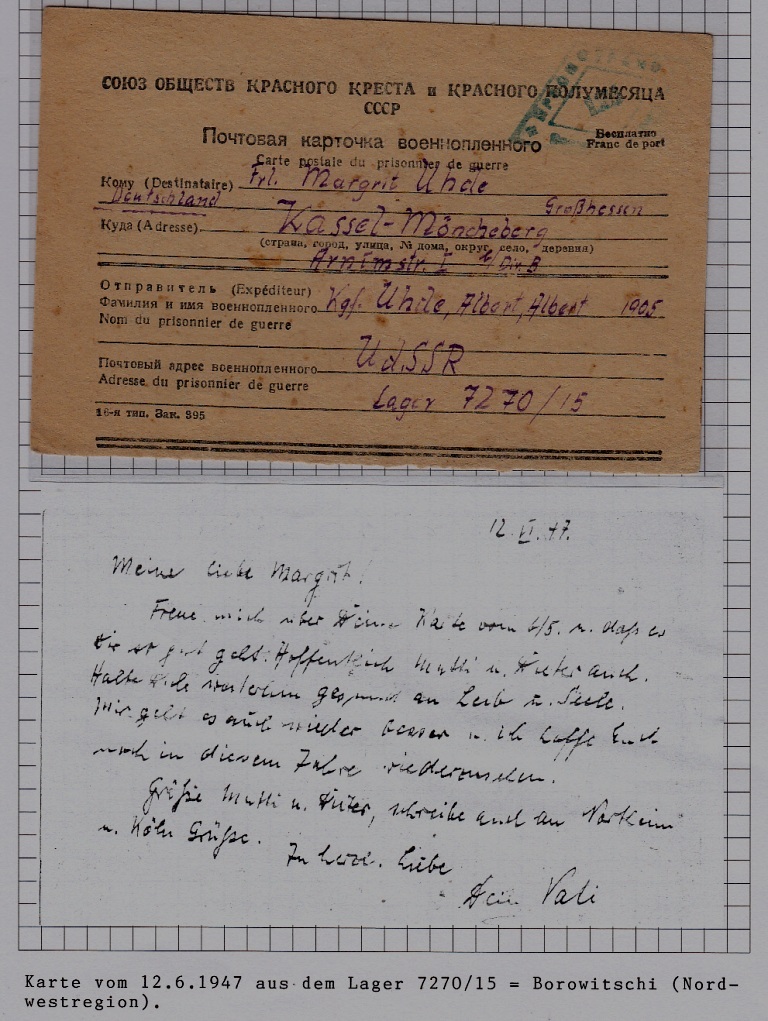 СОЮЗ ОБЩЕСТВ КРАСНОГО КРЕСТА и КРАСНОГО ПОЛУМЕСЯЦА
СССР
Почтовая карточка военнопленного
Carte postale du prisonnier de guerre
Бесплатно
Franc de port
Кому (Destinataire) Frl. Margrit Uhde
Deutschland Großhessen
Куда (Adresse) Kassel-Möncheberg
(страна, город, улица, № дома, округ, село, деревня)
Arnimstr. I
Отправитель (Expéditeur)
Фамилия и имя военнопленного Kgf. Uhde, Albert, Albert 1905
Nom du prisonnier de guerre
UdSSR
Почтовый адрес военнопленного
Adresse du prisonnier de guerre
Lager 7270/15
16-я тип. Зак. 395
12.VI.47.
Meine liebe Margrit!
Freue mich über Deine Karte vom u. daß es
Dir so gut geht. Hoffentlich Mutti u. Dieter auch.
Halte Dich weiterhin gesund an Leib u. Seele.
Mir geht es auch wieder besser u. ich hoffe Euch
noch in diesem Jahre wiederzusehen.
Grüße Mutti u. Dieter, schreibe auch an
u. Köln Grüße.
In herzl. Liebe
Dein Vati
Karte vom 12.6.1947 aus dem Lager 7270/15 = Borowitschi (Nord-
westregion).